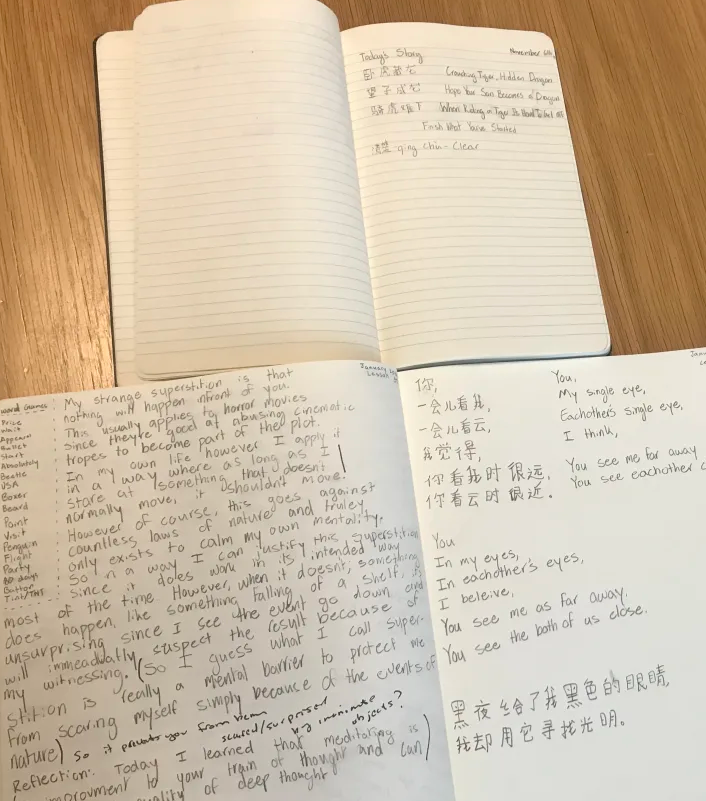 Today's Story
November 6th,
卧虎藏龙 Crouching Tiger, Hidden Dragon
望子成龙 Hope Your Son Becomes a Dragon
骑虎难下 When Riding a Tiger Its Hard To Get Off
Finish What You've Started
清楚 qing chu - Clear
January
Lesson
word Games:
Price
Wait
Appears
Ballet
Start
Absolutely
Beetle
USA
Boxer
Beard
Point
Visit
Penguin
Flight
Party
Button
My strange superstition is that
nothing will happen infront of you.
This usually applies to horror movies
since theyre good at abusing cinematic
tropes to become part of the plot.
In my own life however I apply it
in a way where as long as I
stare at something that doesn't
normally move, it shouldn't move!
However of course, this goes against
countless laws of nature and truley
only exists to calm my own mentality.
So in a way I can justify this superstition
since it does work in its intended way
most of the time. However, when it doesn't, something
does happen, like something falling of a shelf, its
unsurprising since I see the event go down and
will immeadiatly suspect the result because of
my witnessing. (So I guess what I call super-
stition is really a mental barrier to protect me
from scaring myself simply because of the events of
nature) so it prevents you from being
scared/surprised
by inanimate
objects?
Reflection: Today I learned that meditating is
improvment to your train of thought and can
quality of deep thought
你,
一会儿看我,
一会儿看云,
我觉得,
你看我时很远,
你看云时很近。
You,
My single eye,
Eachother's single eye,
I think,
You see me far away
You see eachother
You
In my eyes,
In eachother's eyes,
I beleive,
You see me as far away.
You see the both of us close.
黑夜给了我黑色的眼睛
我却用它寻找光明。